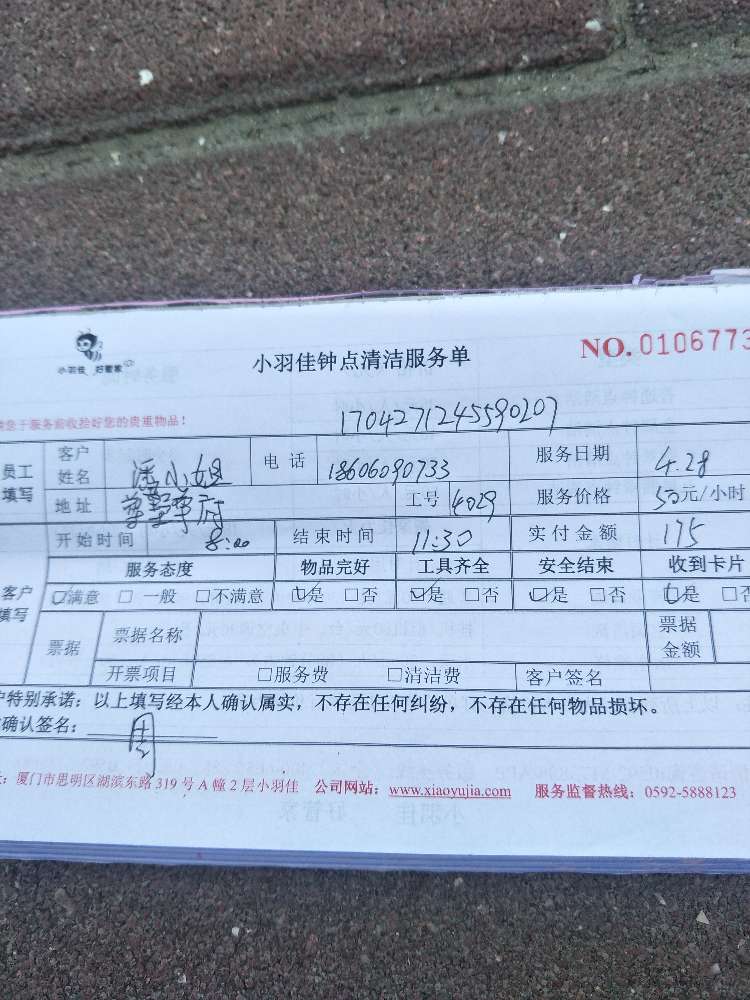 小羽佳 好管家
小羽佳钟点清洁服务单
NO. 0106773
请您于服务前收拾好您的贵重物品！
1704271245590207
员工填写 客户姓名 潘小姐 电话 18606090733 服务日期 4.28
地址 学府 工号 4029 服务价格 50元/小时
开始时间 8:00 结束时间 11:30 实付金额 175
客户填写 服务态度 物品完好 工具齐全 安全结束 收到卡片
☑满意 □一般 □不满意 ☑是 □否 ☑是 □否 ☑是 □否 ☑是 □否
票据 票据名称 票据金额
开票项目 □服务费 □清洁费 客户签名
户特别承诺：以上填写经本人确认属实，不存在任何纠纷，不存在任何物品损坏。
确认签名： 周
：厦门市思明区湖滨东路 319 号 A 幢 2 层小羽佳 公司网站：www.xiaoyujia.com 服务监督热线：0592-5888123